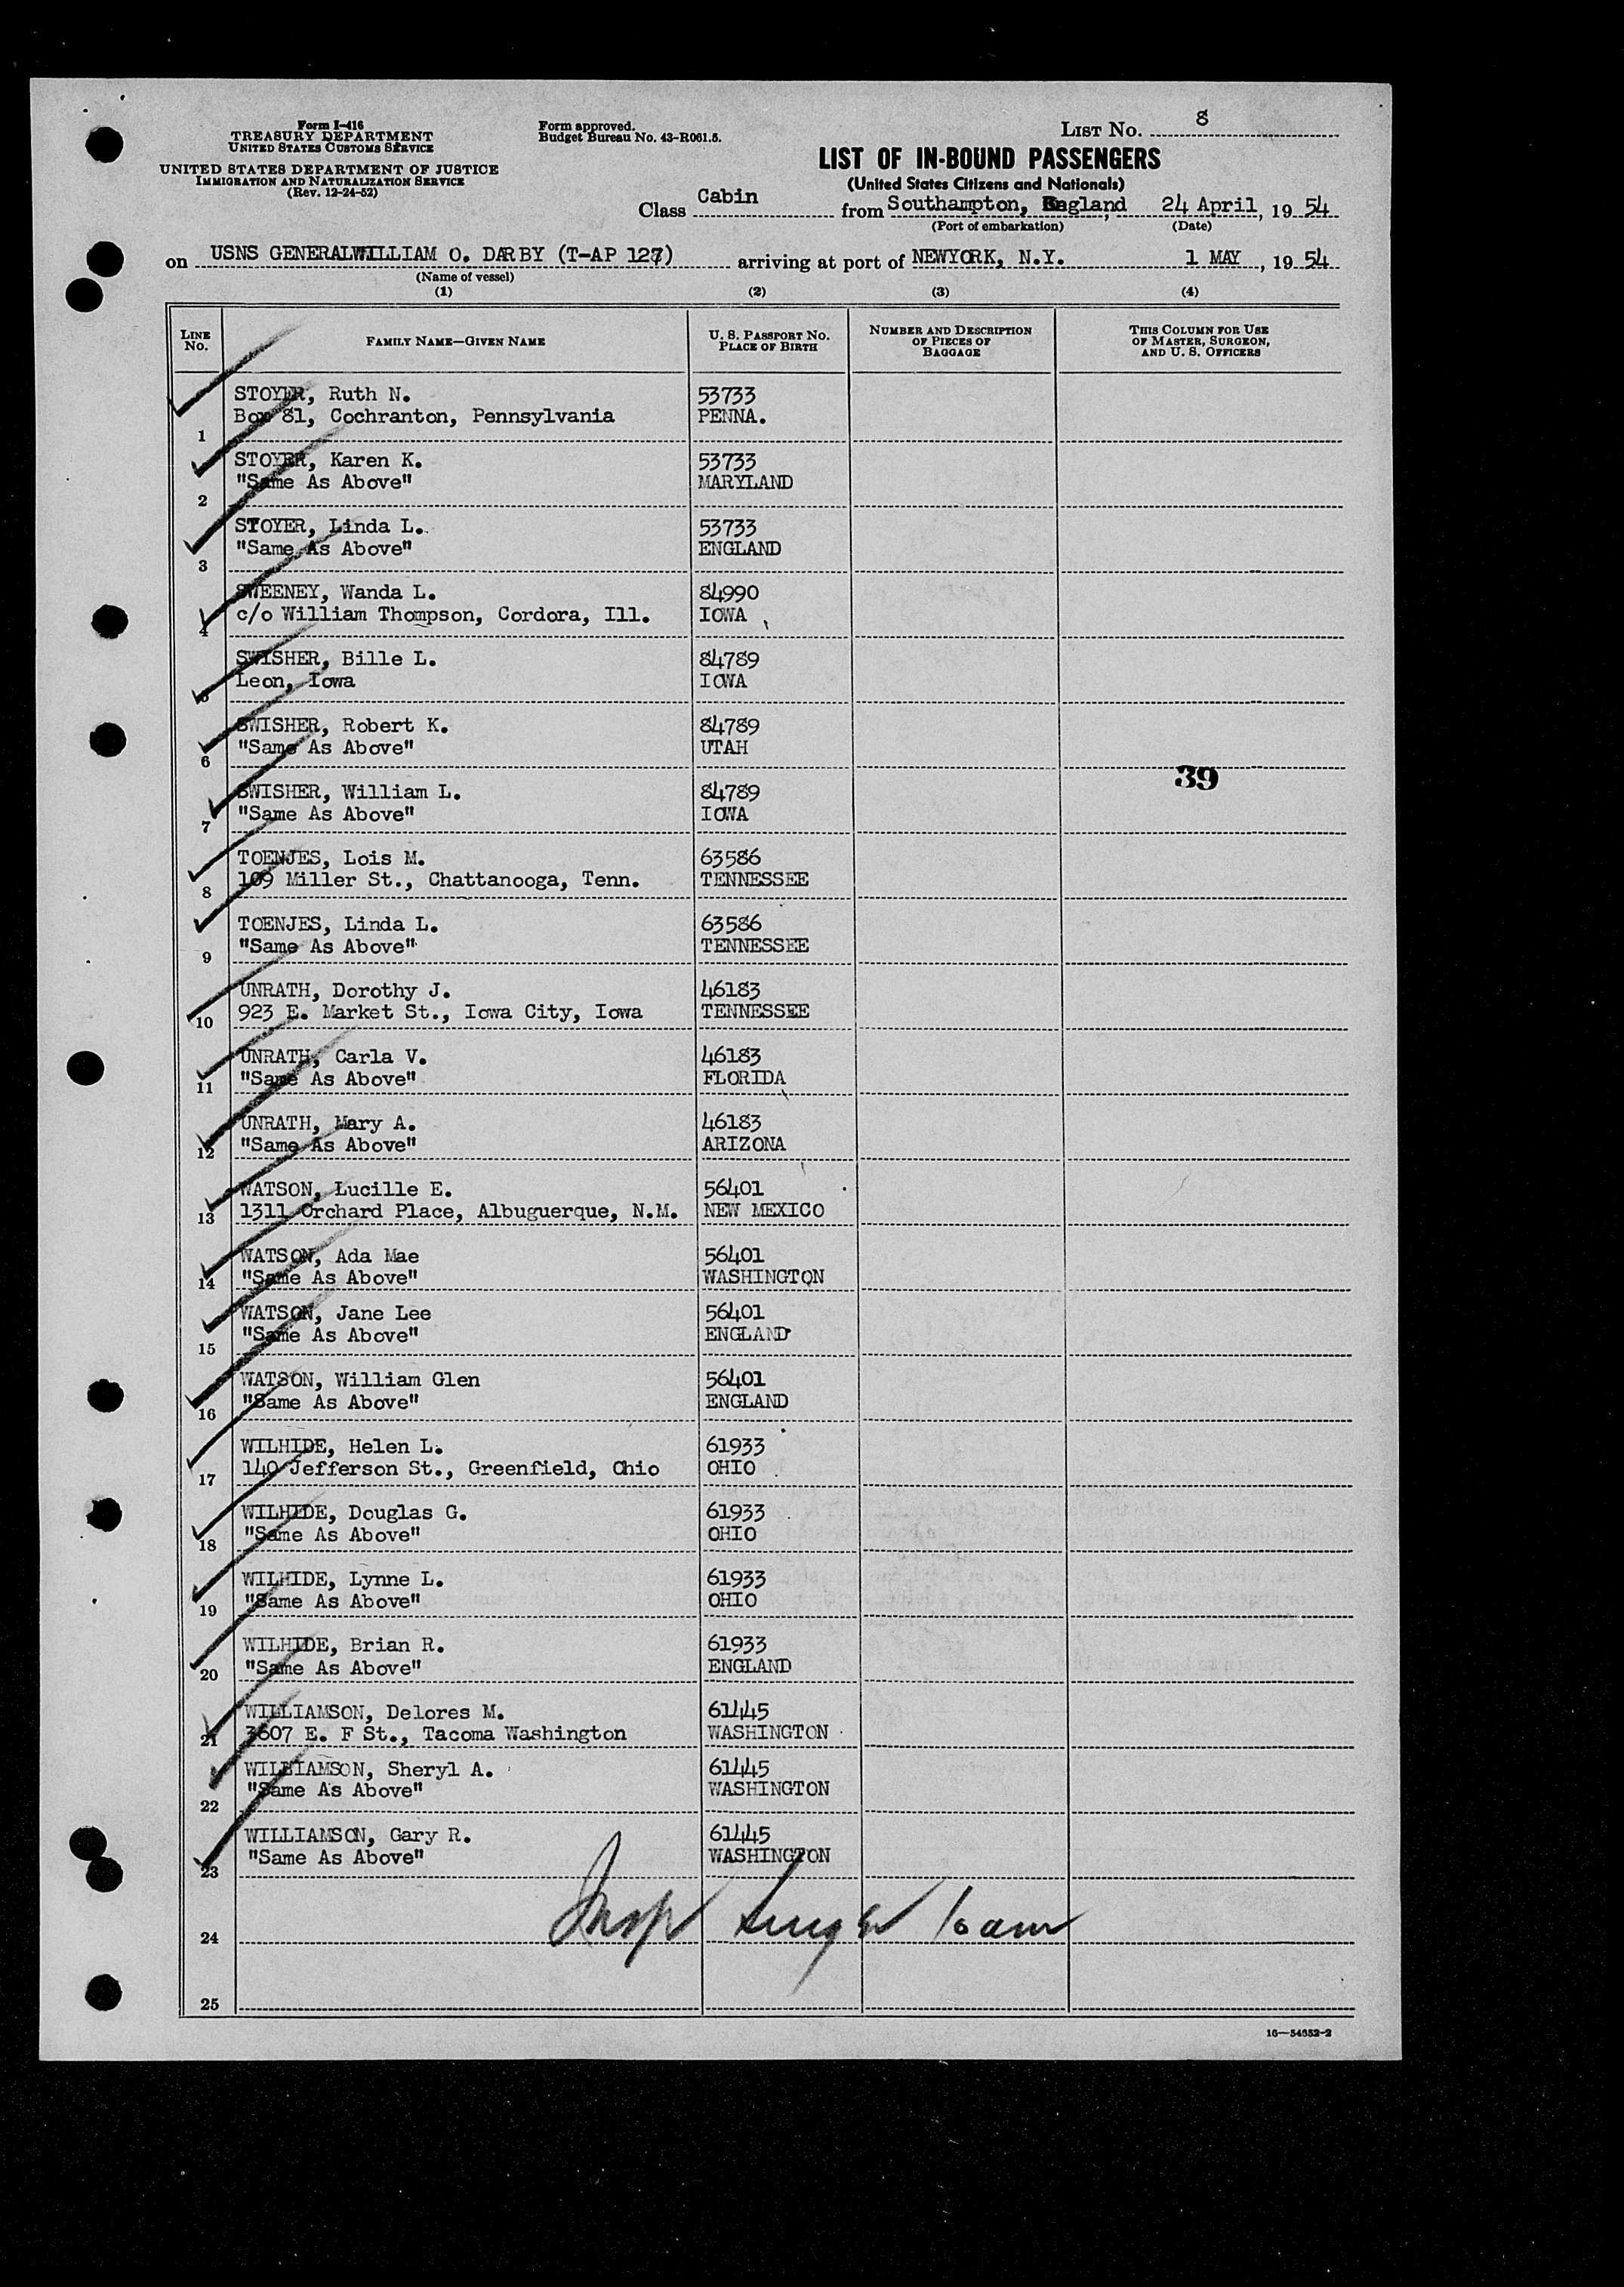 Form I-416
TREASURY DEPARTMENT
UNITED STATES CUSTOMS SERVICE
UNITED STATES DEPARTMENT OF JUSTICE
IMMIGRATION AND NATURALIZATION SERVICE
(Rev. 12-24-52)
Form approved.
Budget Bureau No. 43-R061.5.
LIST NO. 8
LIST OF IN-BOUND PASSENGERS
(United States Citizens and Nationals)
Class Cabin from Southampton, England, 24 April, 19 54
(Port of embarkation) (Date)
on USNS GENERALWILLIAM O. DARBY (T-AP 127) arriving at port of NEWYORK, N.Y. 1 MAY, 19 54
(Name of vessel)
(1) (2) (3) (4)
LINE NO. FAMILY NAME—GIVEN NAME U. S. PASSPORT NO. PLACE OF BIRTH NUMBER AND DESCRIPTION OF PIECES OF BAGGAGE THIS COLUMN FOR USE OF MASTER, SURGEON, AND U. S. OFFICERS
STOYER, Ruth N. 53733
Box 81, Cochranton, Pennsylvania PENNA.
1
STOYER, Karen K. 53733
"Same As Above" MARYLAND
2
STOYER, Linda L. 53733
"Same As Above" ENGLAND
3
SWEENEY, Wanda L. 84990
c/o William Thompson, Cordora, Ill. IOWA
4
SWISHER, Bille L. 84789
Leon, Iowa IOWA
5
SWISHER, Robert K. 84789
"Same As Above" UTAH
6
39
SWISHER, William L. 84789
"Same As Above" IOWA
7
TOENJES, Lois M. 63586
109 Miller St., Chattanooga, Tenn. TENNESSEE
8
TOENJES, Linda L. 63586
"Same As Above" TENNESSEE
9
UNRATH, Dorothy J. 46183
923 E. Market St., Iowa City, Iowa TENNESSEE
10
UNRATH, Carla V. 46183
"Same As Above" FLORIDA
11
UNRATH, Mary A. 46183
"Same As Above" ARIZONA
12
WATSON, Lucille E. 56401
1311 Orchard Place, Albuguerque, N.M. NEW MEXICO
13
WATSON, Ada Mae 56401
"Same As Above" WASHINGTON
14
WATSON, Jane Lee 56401
"Same As Above" ENGLAND
15
WATSON, William Glen 56401
"Same As Above" ENGLAND
16
WILHIDE, Helen L. 61933
140 Jefferson St., Greenfield, Ohio OHIO
17
WILHIDE, Douglas G. 61933
"Same As Above" OHIO
18
WILHIDE, Lynne L. 61933
"Same As Above" OHIO
19
WILHIDE, Brian R. 61933
"Same As Above" ENGLAND
20
WILLIAMSON, Delores M. 61445
3607 E. F St., Tacoma Washington WASHINGTON
21
WILLIAMSON, Sheryl A. 61445
"Same As Above" WASHINGTON
22
WILLIAMSON, Gary R. 61445
"Same As Above" WASHINGTON
23
Insp 10 am
24
25
16—54652-2